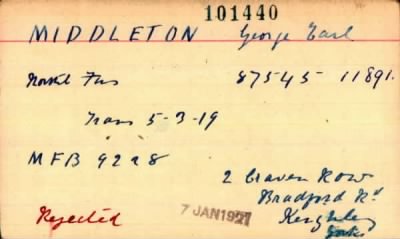 101440
MIDDLETON George Earl
North Fus 87545 11891.
Trans 5-3-19
MFB 9228
2 Craven Row
Bradford Rd
Keighley
Yorks
Rejected
7 JAN 1921